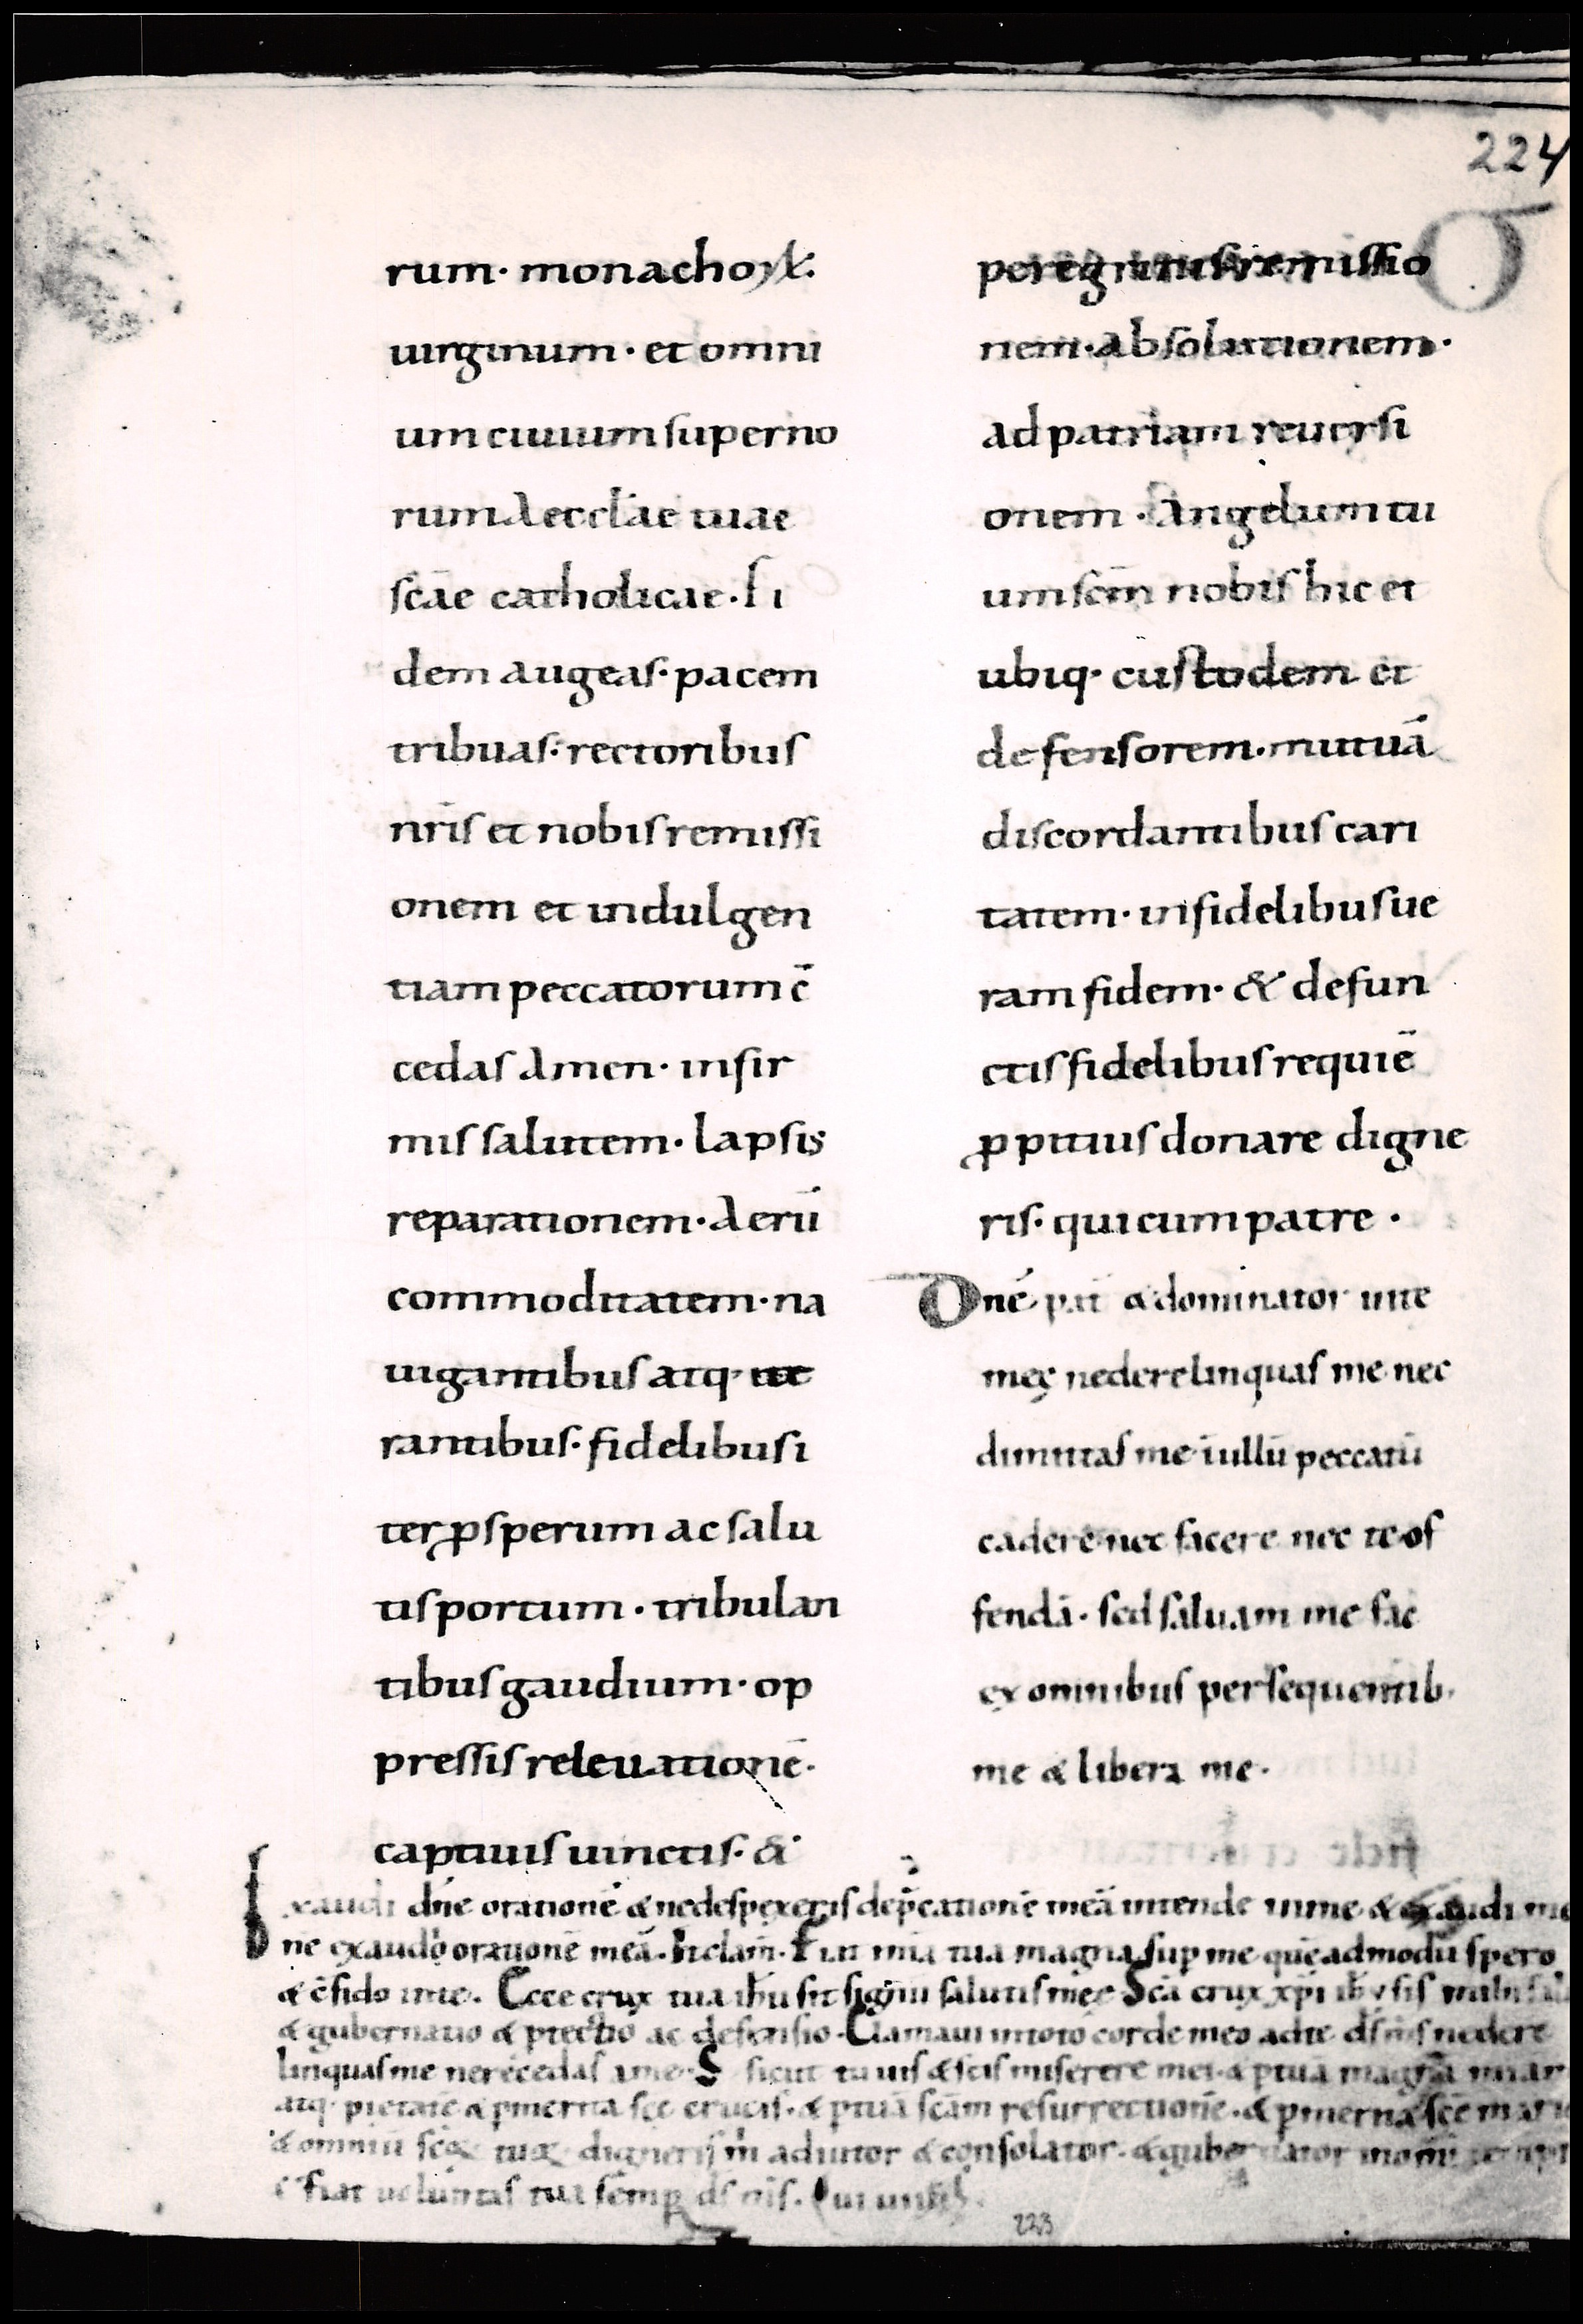 224
rum· monachoꝝ·
uirginum· et omni
um ciuium superno
rum Aecclae tuae
scāe catholicae· fi
dem augeas· pacem
tribuas· rectoribus
nr̄is et nobis remissi
onem et indulgen
tiam peccatorum c̄
cedas Amen· infir
mis salutem· lapsis
reparationem· Aerū
commoditatem· na
uigantibus atq· ite
rantibus· fidelibus i
ter ꝓsperum ac salu
tis portum· tribulan
tibus gaudium· op
pressis releuationē·
captiuis uinctis· &
peregrinis remissio
nem· absolutionem·
ad patriam reuersi
onem· Angelum tu
um scm̄ nobis hic et
ubiq· custodem et
defensorem· mutuā
discordantibus cari
tatem· infidelibus ue
ram fidem· & defun
ctis fidelibus requiē
ꝓpitius donare digne
ris· qui cum patre·
Dnē pat̄ & dominator uite
meę ne derelinquas me nec
dimittas me ī ullū peccatū
cadere nec facere nec te of
fendā· sed saluam me fac
ex omnibus persequentib·
me & libera me·
Exaudi dn̄e orationē & ne despexeris dep̄cationē meā intende in me & exaudi me
ne exaudi orationē meā· Fiat mīa tua magna sup me quēadmodū spero
& c̄fido in te· Ecce crux tua ih̄u sit signū salutis meę Scā crux xp̄i
& gubernatio & ptectio ac defensio· Clamaui in toto corde meo ad te ds̄ ms̄ ne dere
linquas me ne recedas a me· sicut tu uis & scis miserere mei· & p tuā magnā
atq· pietatē & p merita scē crucis· & p tuā scām resurrectionē· & p merita scē
& omniū scoꝝ tuoꝝ digneris m̄ adiutor & consolator· & gubernator
fiat uoluntas tua semp ds̄ ms̄· Qui
223